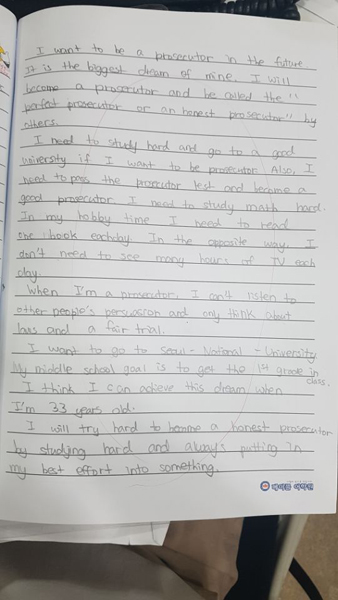 I want to be a prosecutor in the future
It is the biggest dream of mine. I will
become a prosecutor and be called the "
perfect prosecutor or an honest prosecutor" by
others.
I need to study hard and go to a good
university if I want to be prosecutor. Also, I
need to pass the prosecutor test and become a
good prosecutor. I need to study math hard.
In my hobby time, I need to read
one book each day. In the opposite way, I
don't need to see many hours of TV each
day.
When I'm a prosecutor, I can't listen to
other people's persuasion and only think about
laws and a fair trial.
I want to go to Seoul-National-University
My middle school goal is to get the 1st grade in
class.
I think I can achieve this dream when
I'm 33 years old.
I will try hard to become a honest prosecutor
by studying hard and always putting in
my best effort into something.